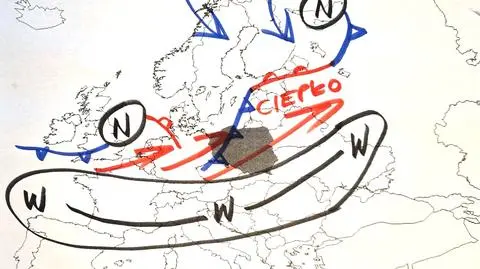 N
CIEPŁO
N
W
W
W